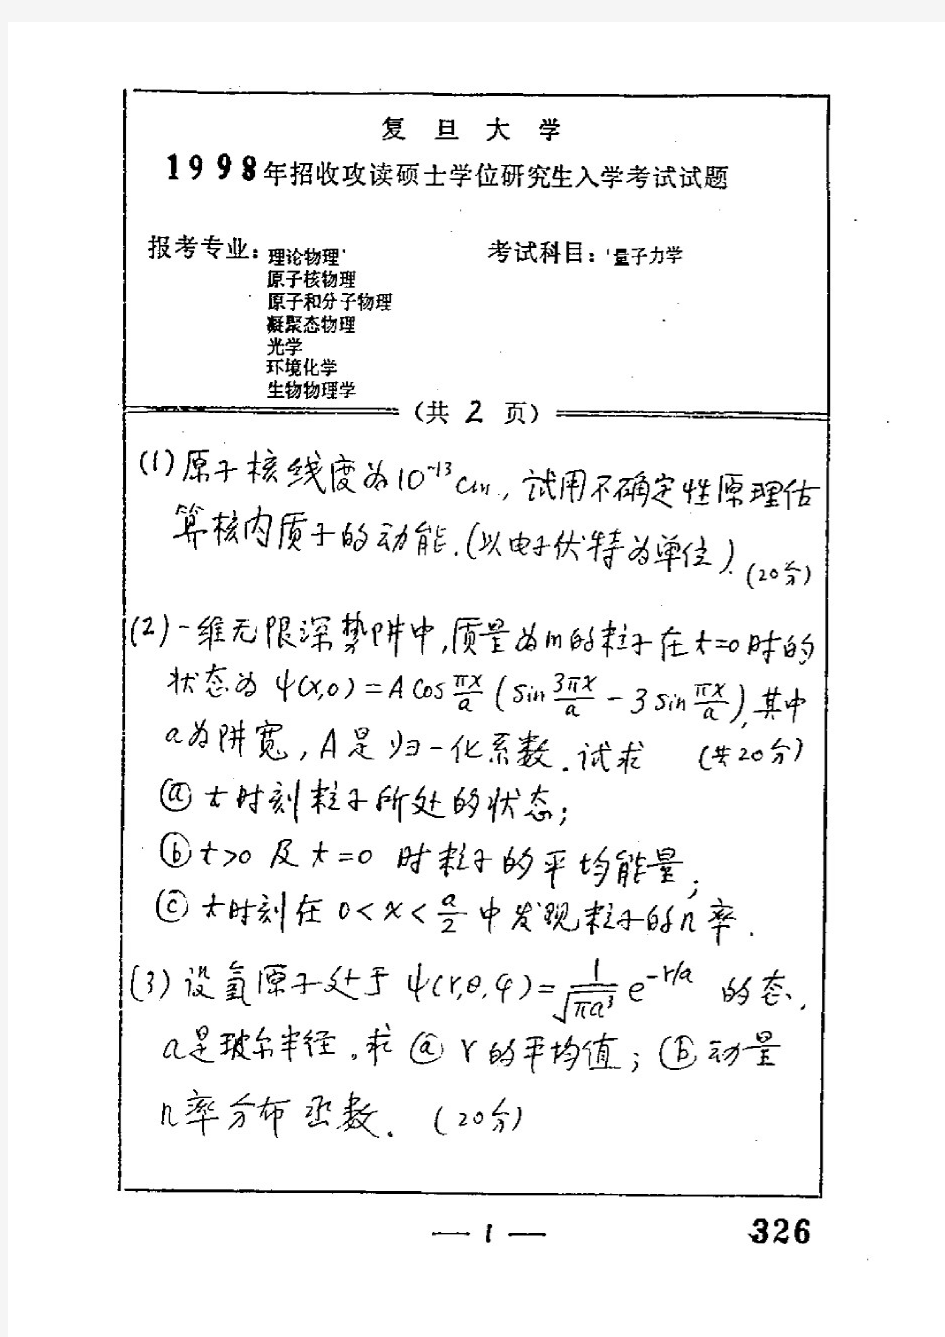 复 旦 大 学
1998年招收攻读硕士学位研究生入学考试试题
报考专业：理论物理 考试科目：量子力学
原子核物理
原子和分子物理
凝聚态物理
光学
环境化学
生物物理学
（共 2 页）
(1)原子核线度为10⁻¹³cm，试用不确定性原理估
算核内质子的动能.(以电子伏特为单位).(20分)
(2)一维无限深势阱中,质量为m的粒子在t=0时的
状态为 ψ(x,0)=A cos πx/a (sin 3πx/a - 3 sin πx/a),其中
a为阱宽，A是归一化系数.试求 (共20分)
ⓐ t时刻粒子所处的状态;
ⓑ t>0 及 t=0 时粒子的平均能量;
ⓒ t时刻在 0<x<a/2 中发现粒子的几率.
(3)设氢原子处于 ψ(r,θ,φ)=1/√πa³ e^(-r/a) 的态,
a是玻尔半径。求 ⓐ r的平均值；ⓑ动量
几率分布函数. (20分)
— 1 — 326